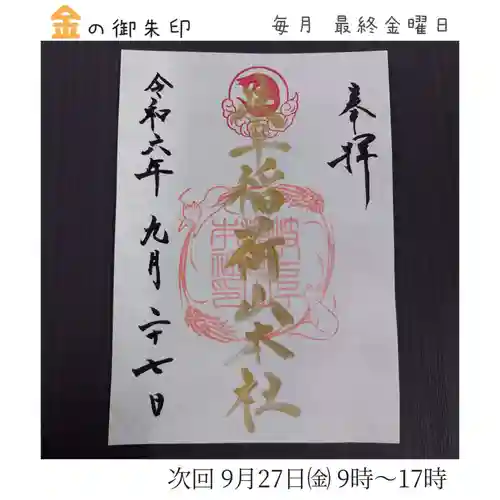 金の御朱印
毎月 最終金曜日
奉拝
稲荷山本社
令和六年 九月 二十七日
次回 9月27日㈮ 9時～17時